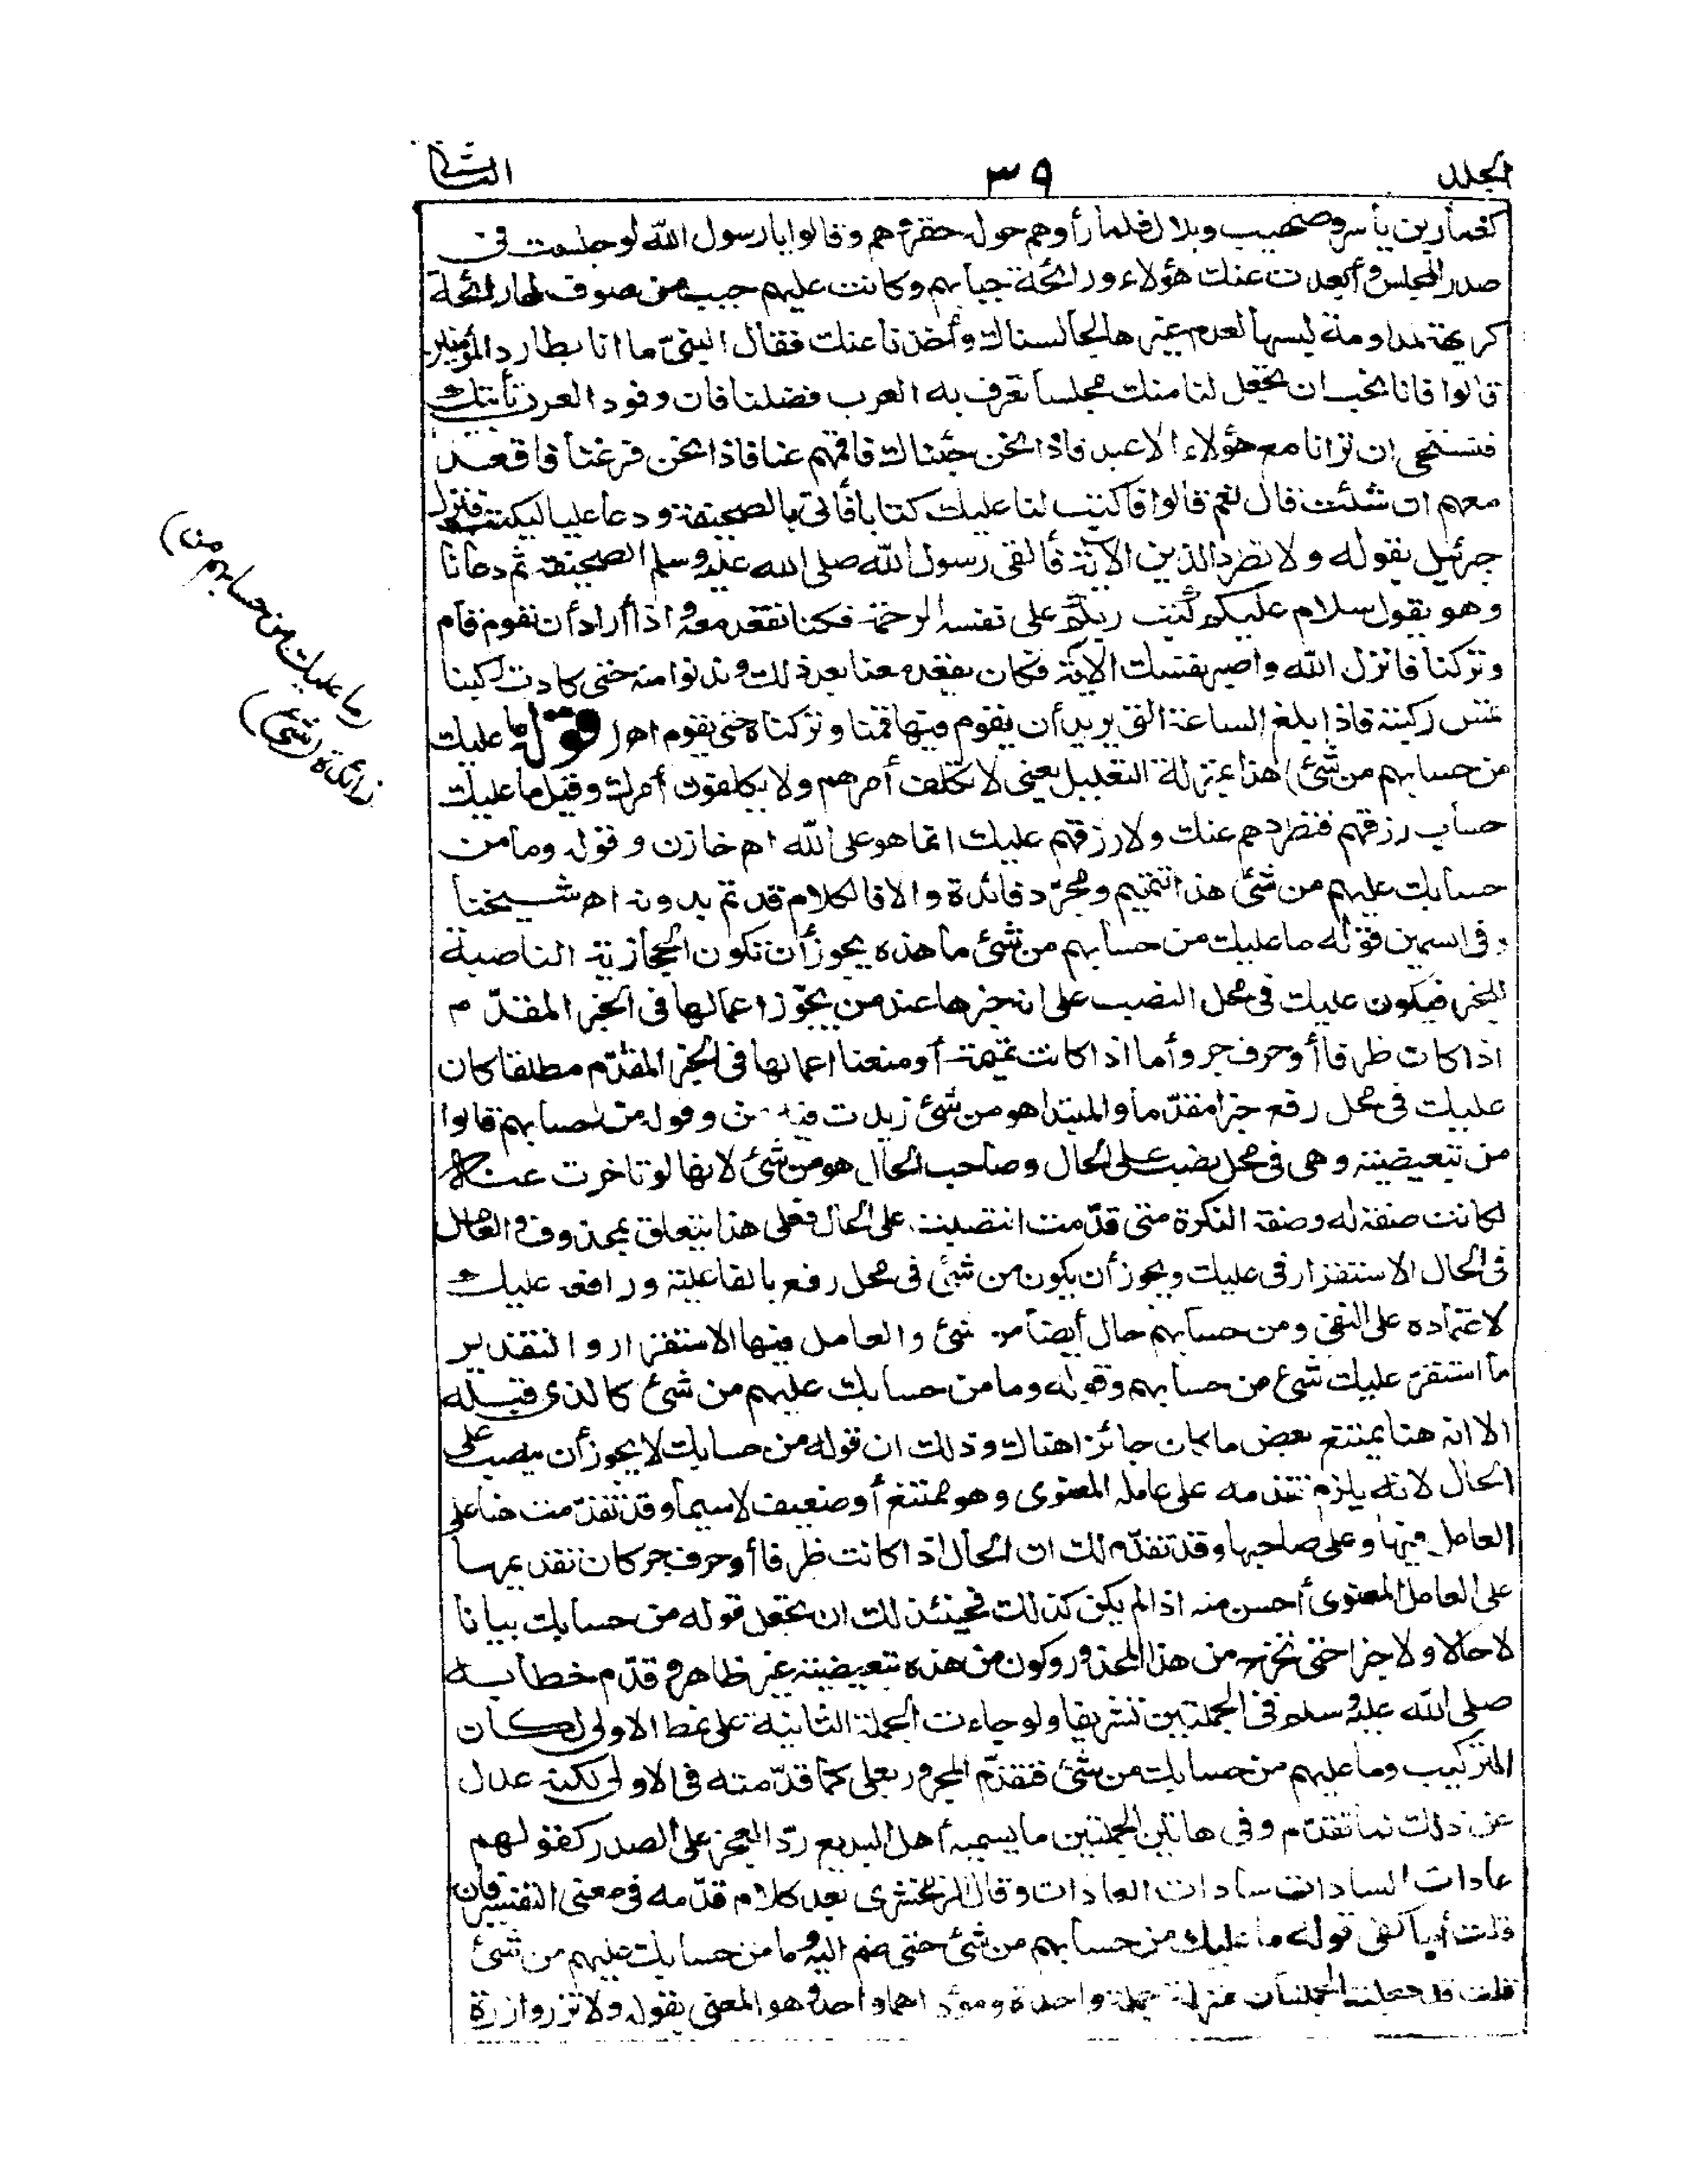 المجلد
٣٩
الثانى
كعمار بن ياسر وصهيب وبلال فلما رأوهم حوله حقروهم وقالوا يا رسول الله لو جلست فى
صدر المجلس وأبعدت عنك هؤلاء ورائحة جبابهم وكانت عليهم جبب من صوف لها رائحة
كريهة لمداومة لبسها لعدم غيرها لجالسناك وأخذنا عنك فقال النبىّ ما انا بطارد المؤمنين
قالوا فانا نحب ان تجعل لنا منك مجلسا تعرف به العرب فضلنا فان وفود العرب تأتيك
فنستحى ان ترانا مع هؤلاء الاعبد فاذا نحن جئناك فاقمهم عنا فاذا نحن فرغنا فاقعد
معهم ان شئت قال نعم قالوا فاكتب لنا عليك كتابا فأتى بالصحيفة ودعا عليا ليكتب فنزل
جبرئيل بقوله ولا تطرد الذين الآية فألقى رسول الله صلى الله عليه وسلم الصحيفة ثم دعانا
وهو يقول سلام عليكم كتب ربكم على نفسه الرحمة فكنا نقعد معه واذا أراد أن يقوم قام
وتركنا فانزل الله واصبر نفسك الآية فكان يقعد معنا بعد ذلك وندنوا منه حتى كادت ركبنا
تمس ركبته فاذا بلغ الساعة التى يريد أن يقوم فيها قمنا وتركناه حتى يقوم اهـ (قوله ما عليك
من حسابهم من شئ) هذا بمنزلة التعليل يعنى لا تكلف أمرهم ولا يكلفون أمرك وقيل ما عليك
حساب رزقهم فتطردهم عنك ولا رزقهم عليك انما هو على الله اهـ خازن وقوله وما من
حسابك عليهم من شئ هذا تتميم ومجرّد فائدة والا فالكلام قد تم بدونه اهـ شيخنا
وفى السمين قوله ما عليك من حسابهم من شئ ما هذه يجوز أن تكون الحجازية الناصبة
للخبر فيكون عليك فى محل النصب على انه خبرها عند من يجوّز اعمالها فى الخبر المقدّم
اذا كان ظرفا أو حرف جر وأما اذا كانت تميمية أو منعنا اعمالها فى الخبر المقدّم مطلقا كان
عليك فى محل رفع خبرا مقدّما والمبتدا هو من شئ زيدت فيه من وقوله من حسابهم قالوا
من تبعيضية وهى فى محل نصب على الحال وصاحب الحال هو من شئ لانها لو تاخرت عنه
لكانت صفة له وصفة النكرة متى قدّمت انتصبت على الحال فعلى هذا يتعلق بمحذوف والعامل
فى الحال الاستقرار فى عليك ويجوز أن يكون من شئ فى محل رفع بالفاعلية ورافعه عليك
لاعتماده على النفى ومن حسابهم حال أيضا من شئ والعامل فيها الاستقرار والتقدير
ما استقرّ عليك شئ من حسابهم وقوله وما من حسابك عليهم من شئ كالذى قبله
الا انه هنا يمتنع بعض ما كان جائزا هناك وذلك ان قوله من حسابك لا يجوز أن ينصب على
الحال لانه يلزم تقدمه على عامله المعنوى وهو ممتنع أو ضعيف لاسيما وقد تقدّمت هنا على
العامل فيها وعلى صاحبها وقد تقدّم لك ان الحال اذا كانت ظرفا أو حرف جر كان تقديمها
على العامل المعنوى أحسن منه اذا لم يكن كذلك فحينئذ لك ان تجعل قوله من حسابك بيانا
لا حالا ولا خبرا حتى تخرج من هذا المحذور وكون من هذه تبعيضية غير ظاهر وقدّم خطابه
صلى الله عليه وسلم فى الجملتين تشريفا ولو جاءت الجملة الثانية على نمط الاولى لكان
التركيب وما عليهم من حسابك من شئ فتقدّم المجرور بعلى كما قدّمته فى الاولى لكنه عدل
عن ذلك لما تقدّم وفى هاتين الجملتين ما يسميه أهل البديع ردّ العجز على الصدر كقولهم
عادات السادات سادات العادات وقال الزمخشرى بعد كلام قدّمه فى معنى التفسير فان
قلت أما كفى قوله ما عليك من حسابهم من شئ حتى ضم اليه وما من حسابك عليهم من شئ
قلت قد جعلت الجملتان بمنزلة جملة واحدة ومؤداهما واحد وهو المعنى بقوله ولا تزر وازرة
(ما عليك من حسابهم من)
زائدة (شئ)